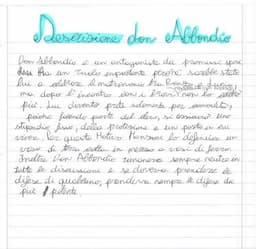 Descrizione don Abbondio
Don Abbondio è un antagonista dei promessi sposi
ha un ruolo importante perché sarebbe stato
lui a celebrare il matrimonio tra Renzo
ma dopo l'incontro con i bravi non lo
più. Lui diventa prete solamente per comodità,
poiché facendo parte del clero, si assicurò uno
stipendio fisso, della protezione e un posto in su
vaso di terra cotta in mezzo a vasi di ferro.
Inoltre Don Abbondio rimaneva sempre neutro in
tutte le discussioni e se doveva prendere le
difese di qualcuno, prendeva sempre le difese del
più potente.